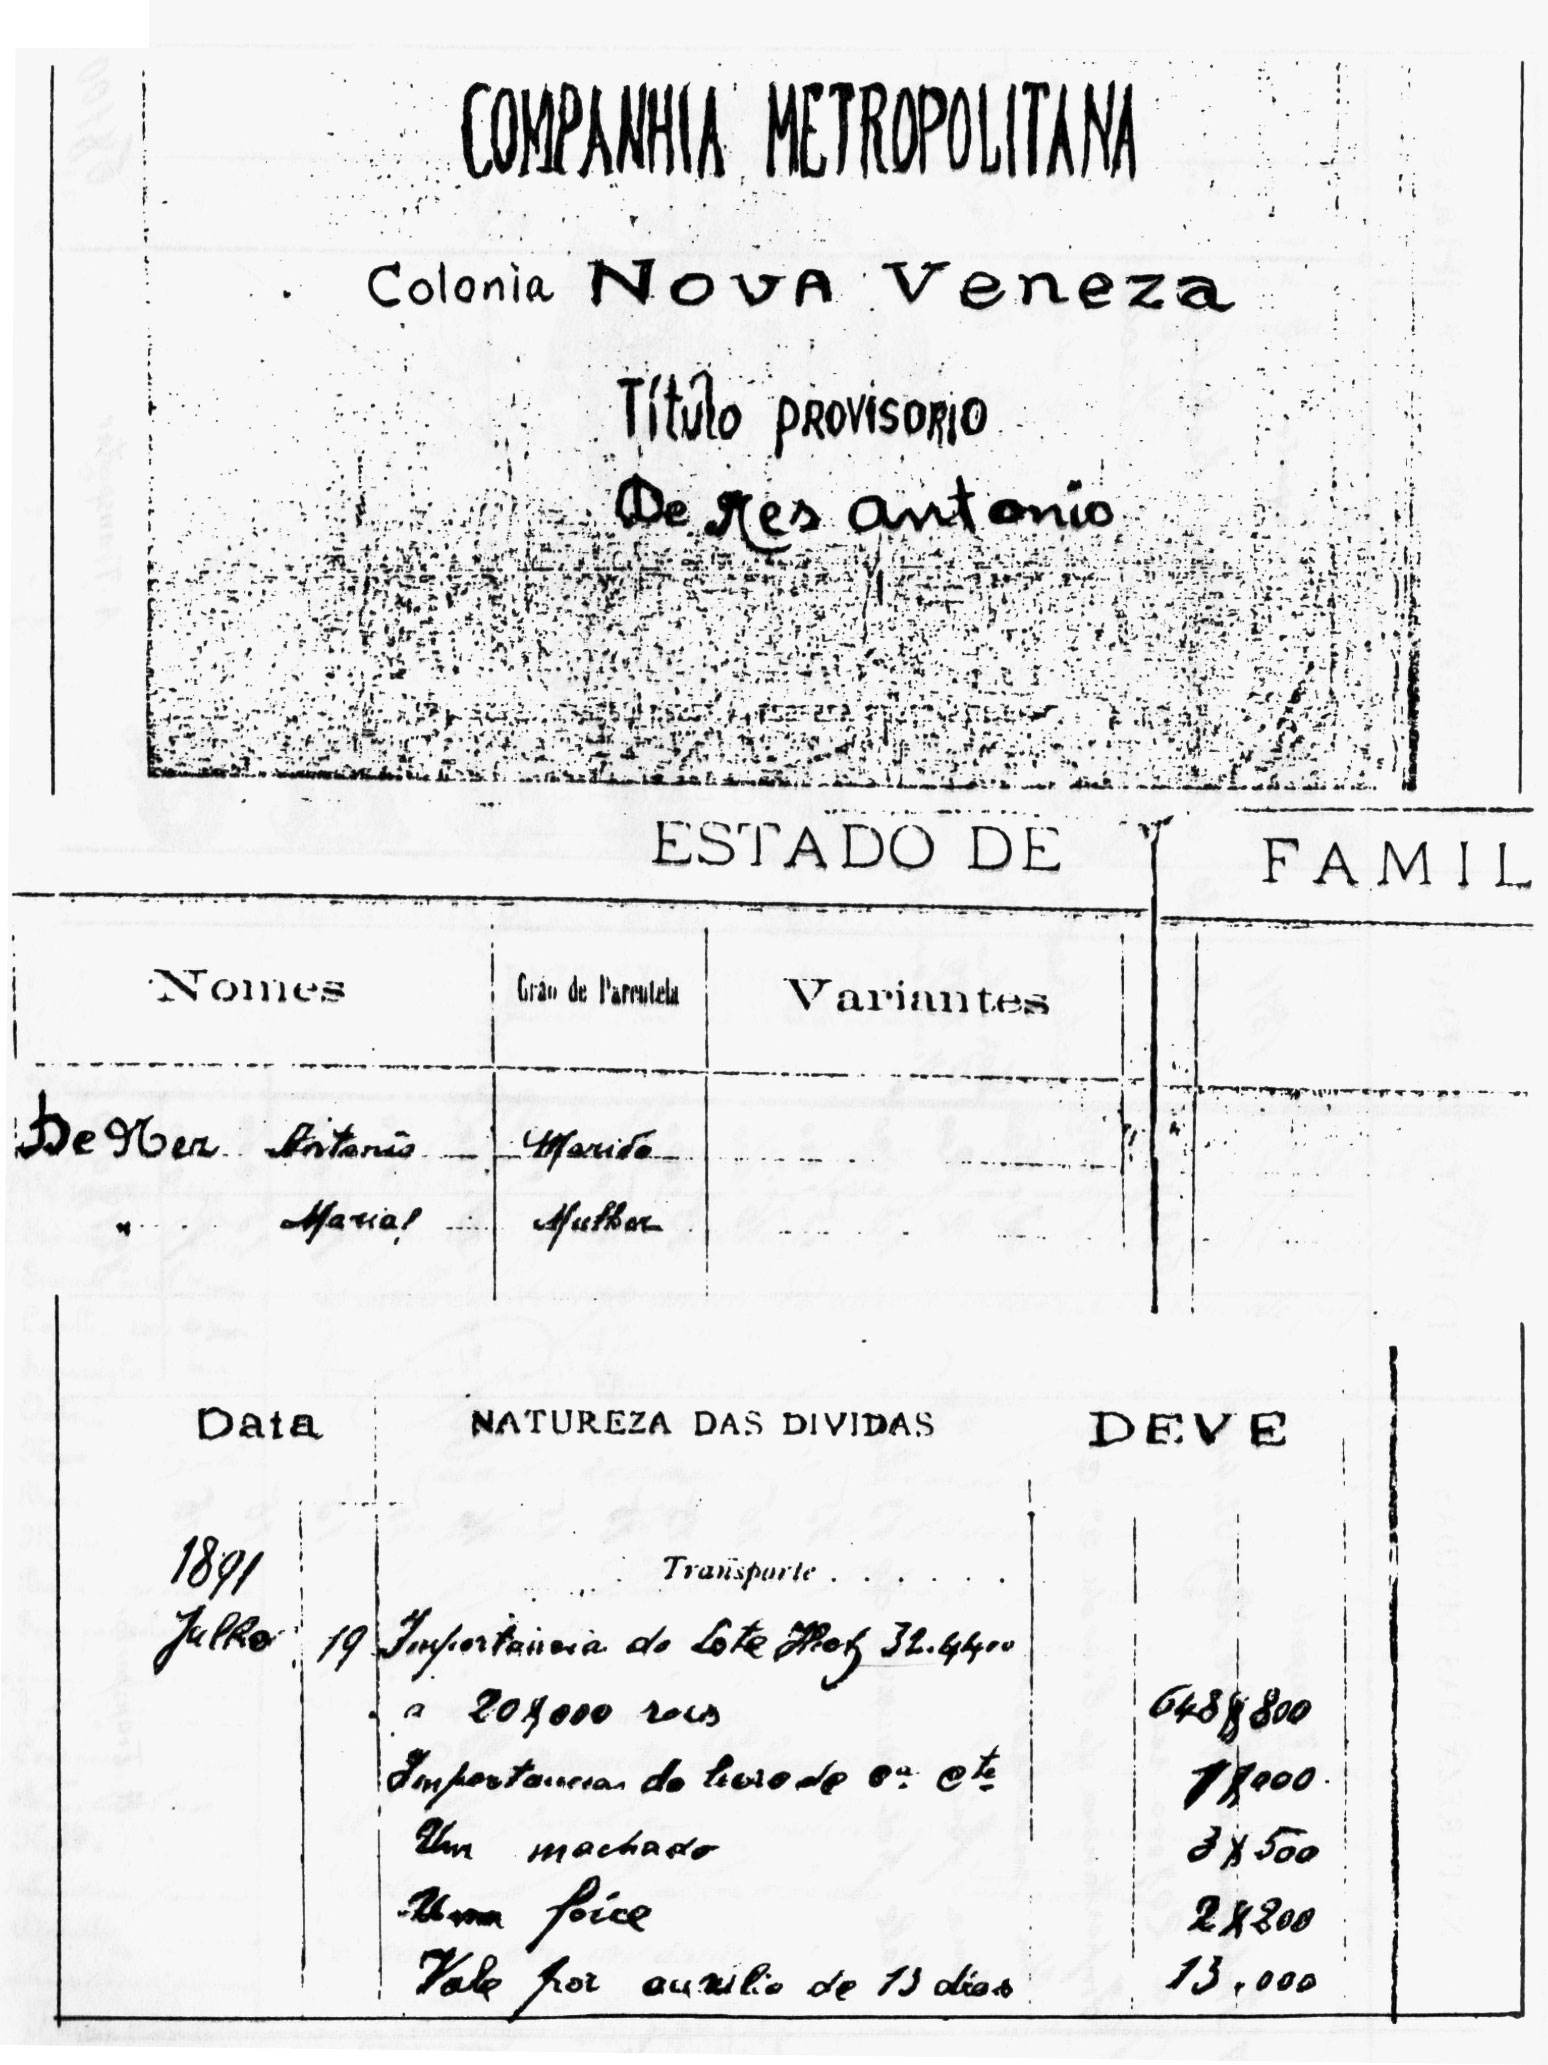 COMPANHIA METROPOLITANA
Colonia NOVA Veneza
Título PROVISORIO
De Nes Antonio
ESTADO DE FAMIL
Nomes Gráo de Parentela Variantes
De Nez Antonio Marido
" Maria Mulher
Data NATUREZA DAS DIVIDAS DEVE
1891 Transporte . . . . . .
Julho 19 Importancia do Lote 32.4400
a 20$000 reis 648$800
Importancia do livro de cª cte 1$000
Um machado 3$500
Uma foice 2$200
Vale por auxilio de 13 dias 13.000